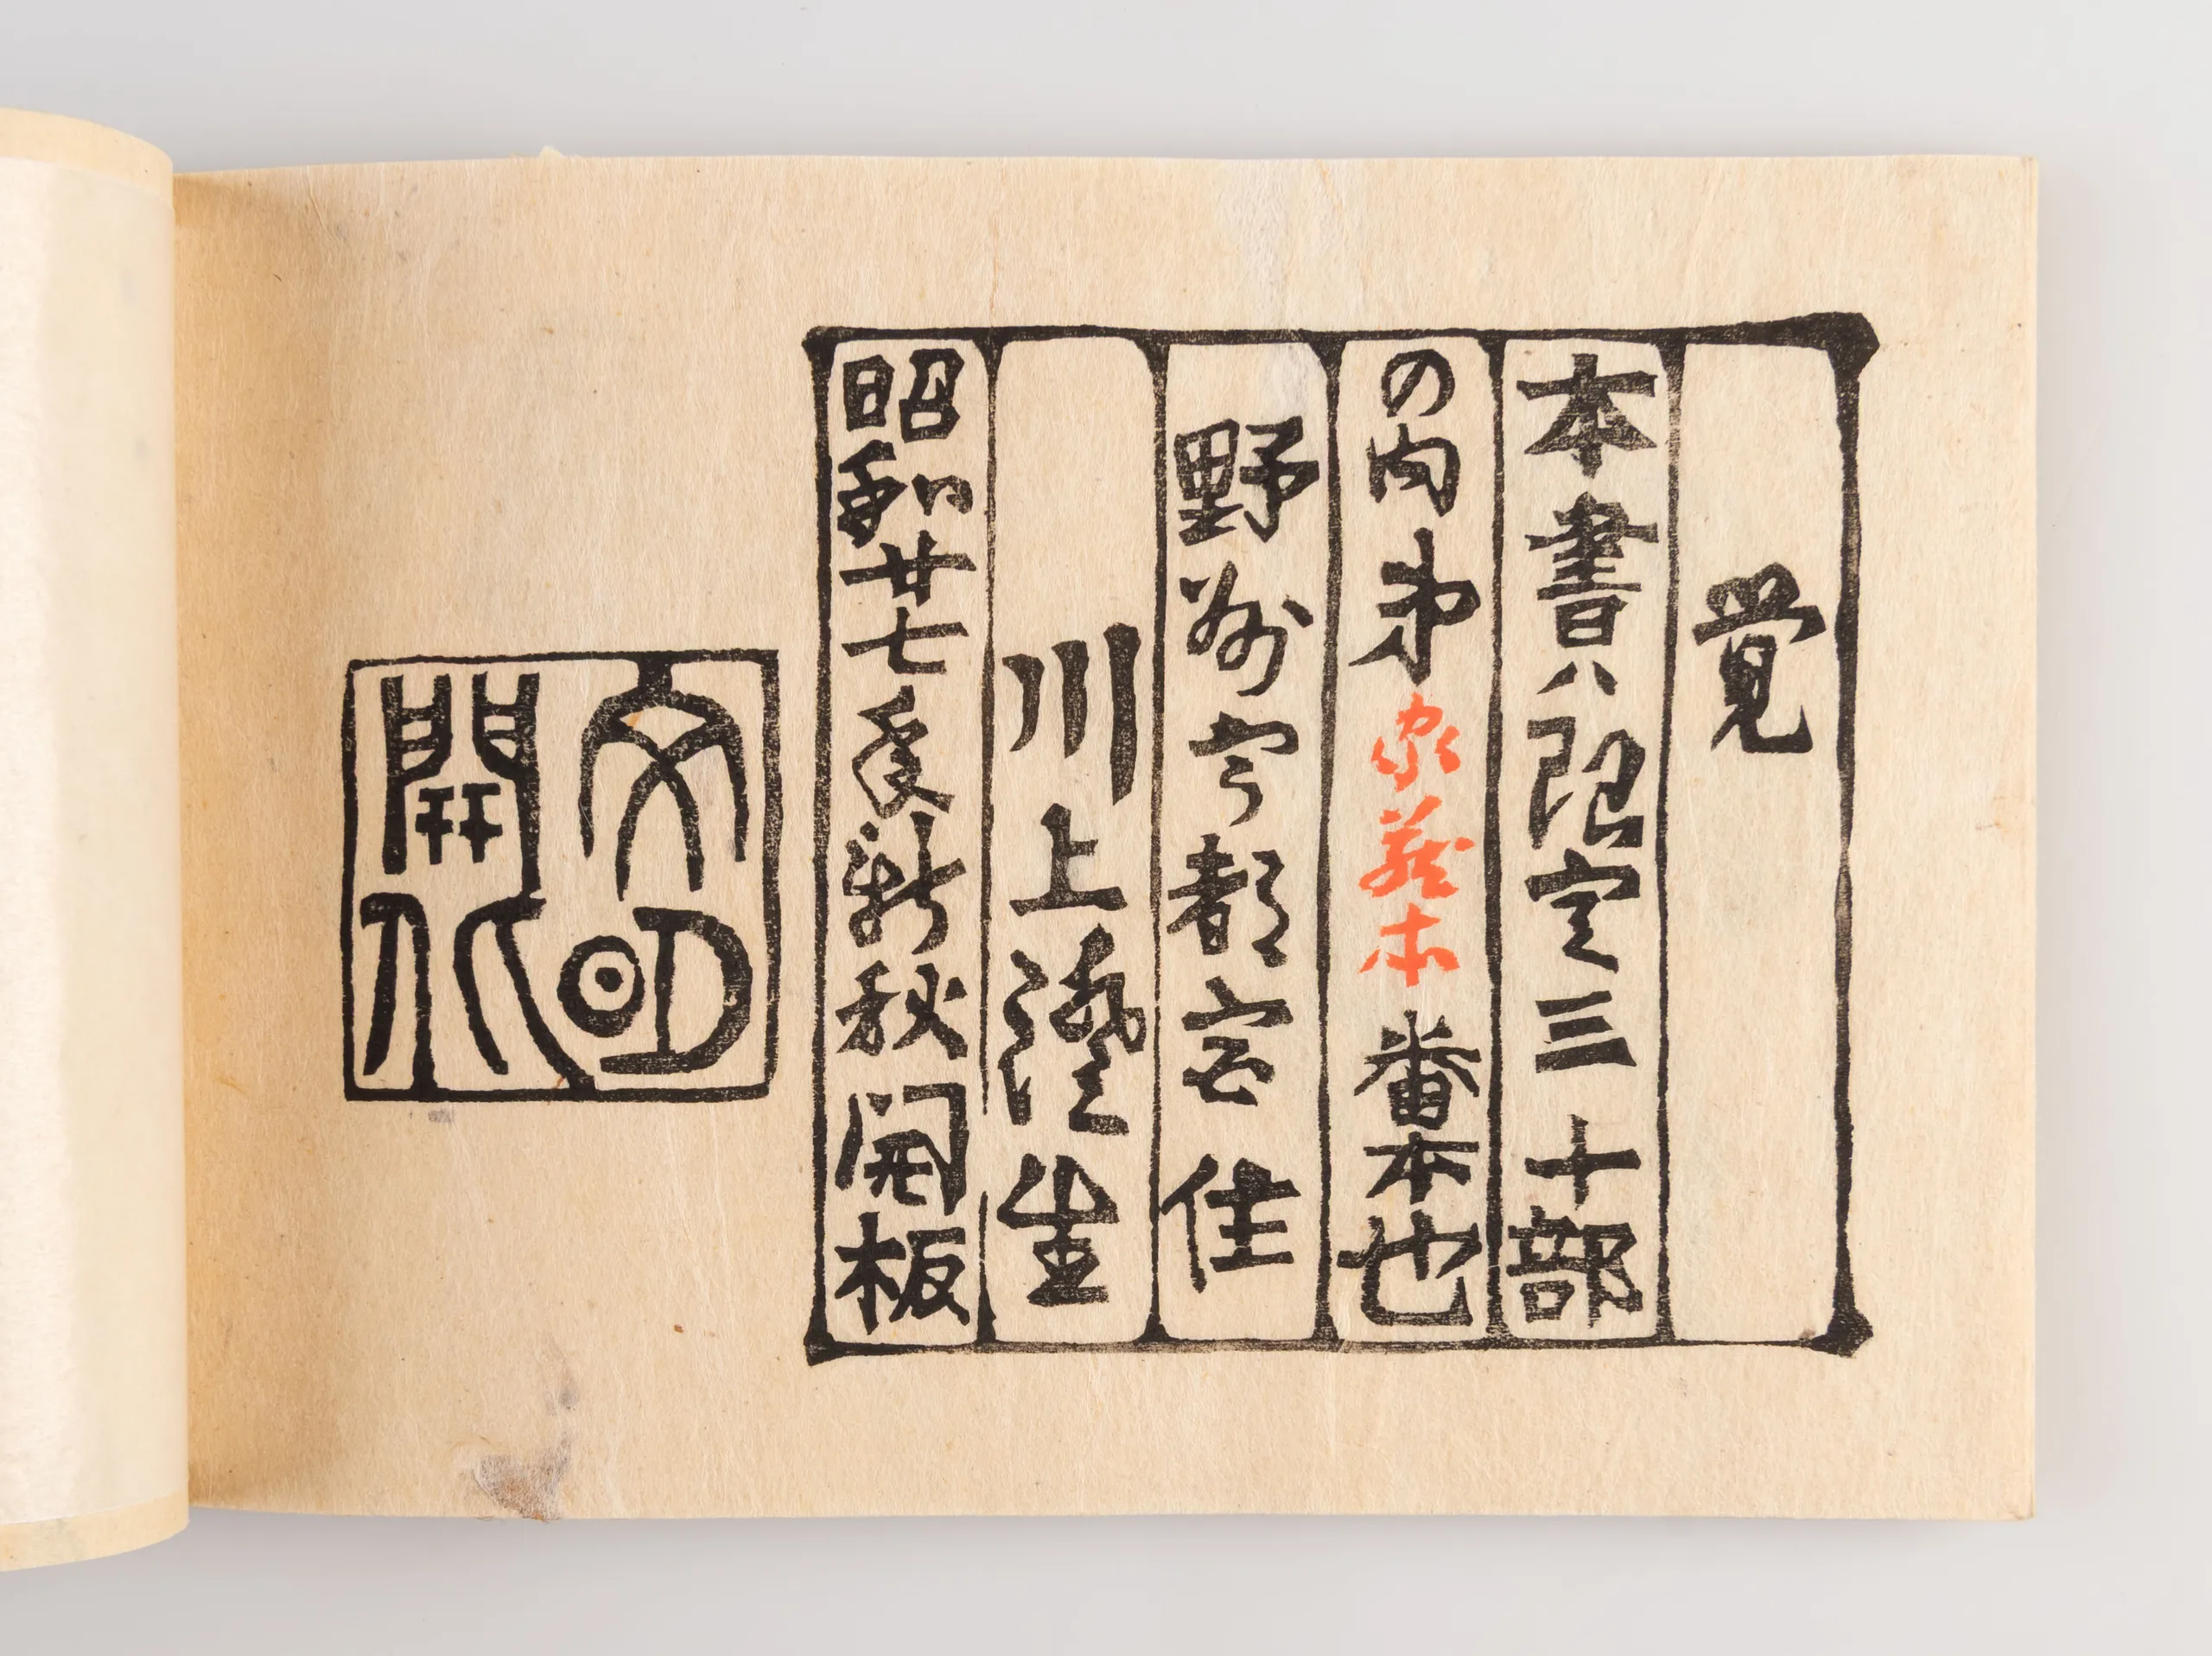 覚
本書ハ限定三十部
の内第家蔵本番本也
野州宇都宮住
川上澄生
昭和廿七年新秋開板
文明
開化